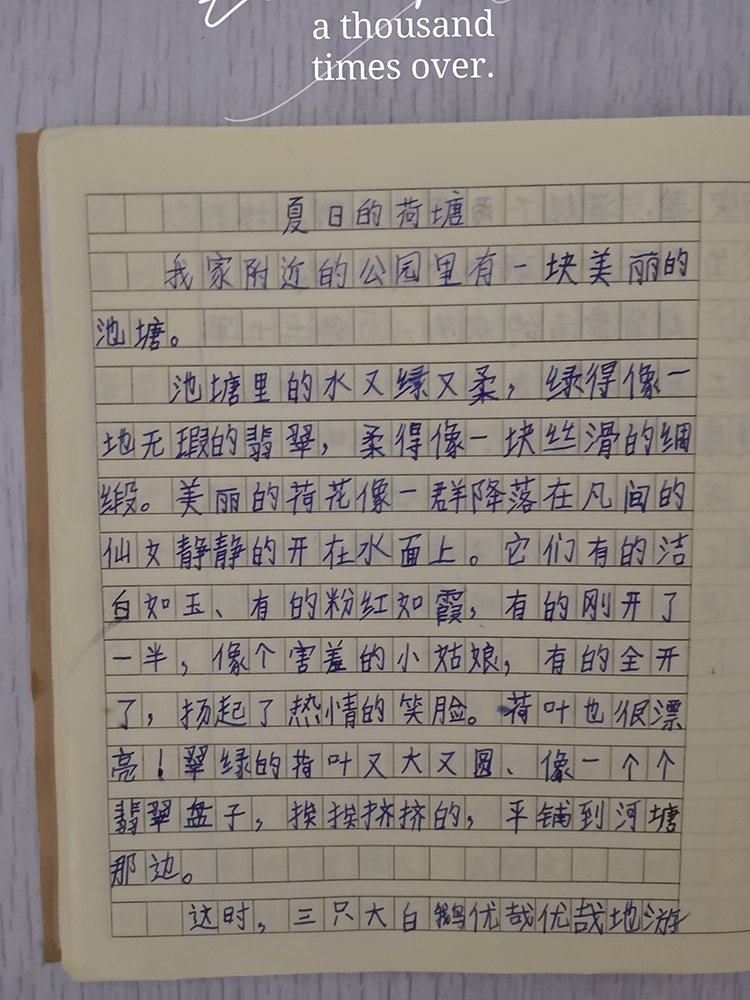 a thousand
times over.
夏日的荷塘
我家附近的公园里有一块美丽的
池塘。
池塘里的水又绿又柔，绿得像一
地无瑕的翡翠，柔得像一块丝滑的绸
缎。美丽的荷花像一群降落在凡间的
仙女静静的开在水面上。它们有的洁
白如玉、有的粉红如霞，有的刚开了
一半，像个害羞的小姑娘，有的全开
了，扬起了热情的笑脸。荷叶也很漂
亮！翠绿的荷叶又大又圆、像一个个
翡翠盘子，挨挨挤挤的，平铺到河塘
那边。
这时，三只大白鹅优哉优哉地游